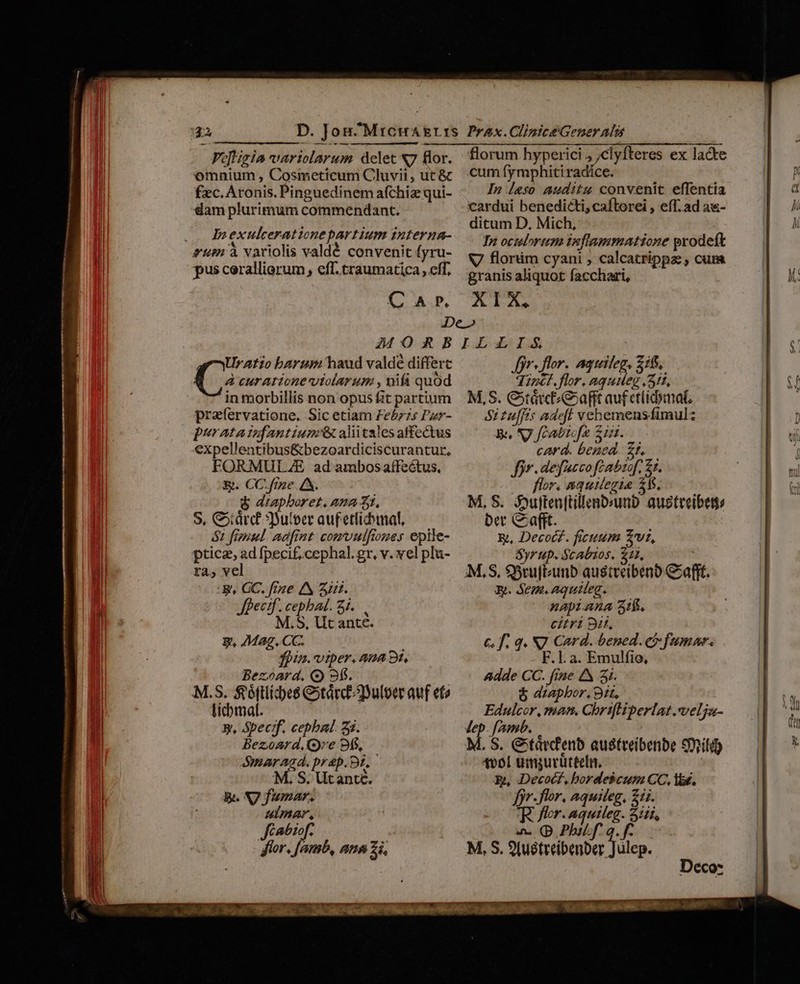 32 D. Joh. Michaelis Prax. Clinicæ Generalis
Vestigia variolarum delet 🜄 flor.
omnium, Cosmeticum Cluvii, ut &
fæc. Aronis. Pinguedinem aschiæ qui-
dam plurimum commendant.
In exulceratione partium interna-
rum à variolis valdè convenit syru-
pus corallierum, ess. traumatica, ess.
florum hyperici, clysteres ex lacte
cum symphiti radice.
In læso auditu convenit essentia
cardui benedicti, castorei, ess. ad au-
ditum D. Mich.
In oculorum inflammatione prodest
🜄 florum cyani, calcatrippæ, cum
granis aliquot sacchari.
Cap. XIX.
De
MORBILLIS.
Curatio harum haud valdè differt
à curatione violarum, nisi quòd
in morbillis non opus sit partium
præservatione. Sic etiam Febris Pur-
purata infantium & alii tales affectus
expellentibus & bezoardicis curantur.
FORMULÆ ad ambos affectus.
℞. CC. sine 🜂.
♁ diaphoret. ana ℈i.
S. Stärck Pulver auf etlichmal.
Si simul adsint convulsiones epile-
pticæ, ad specif. cephal. gr. v. vel plu-
ra, vel
℞. CC. sine 🜂 ʒiii.
specif. cephal. ʒi.
M. S. Ut ante.
℞. Mag. CC.
spin. viper. ana ℈i.
Bezoard. ☉ ℈ß.
M. S. Köstliches Stärck-Pulver auf et-
lichmal.
℞. Specif. cephal. ʒi.
Bezoard. ☉re ℈ß.
Smaragd. præp. ℈i.
M. S. Ut ante.
℞. 🜄 fumar.
ulmar.
scabios.
flor. samb. ana ℥i.
syr. flor. aquileg. ℥iß.
Tinct. flor. aquileg. ʒii.
M. S. Stärck-Safft auf etlichmal.
Si tussis adest vehemens simul:
℞. 🜄 scabiosæ ℥iii.
card. bened. ℥i.
syr. de succo scabios. ℥i.
flor. aquilegiæ ℥ß.
M. S. Hustenstillend- und austreiben-
der Safft.
℞. Decoct. ficuum ℥vi.
Syrup. Scabios. ℥ii.
M. S. Brust- und austreibend Safft.
℞. Sem. aquileg.
napi ana ʒiß.
citri ℈ii.
c. s. q. 🜄 Card. bened. & fumar.
F. l. a. Emulsio,
adde CC. sine 🜂 ʒi.
♁ diaphor. ℈ii.
Edulcor. man. Christi perlat. vel ju-
lep. samb.
M. S. Stärckend austreibende Milch
wol umzurütteln.
℞. Decoct. hordei cum CC. ℔i.
syr. flor. aquileg. ℥ii.
flor. aquileg. ʒiii.
Phil. s. q. s.
M. S. Austreibender Julep.
Deco-